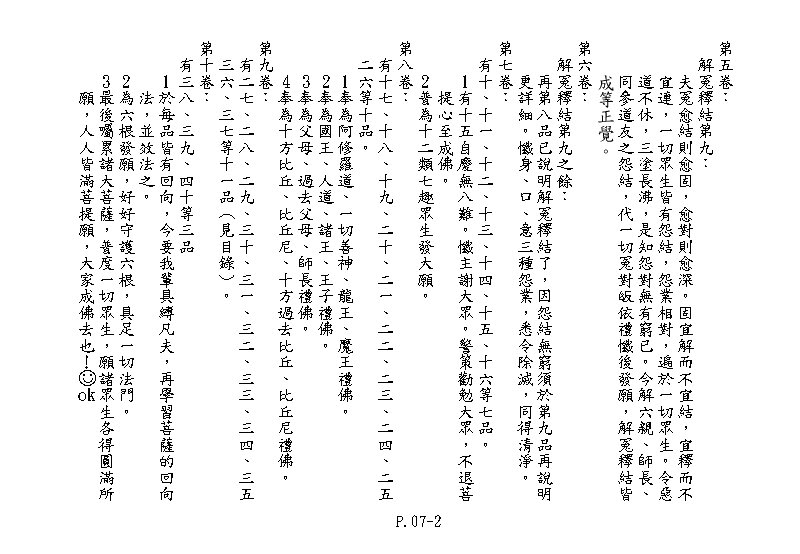 第五卷：
解冤釋結第九：
夫冤愈結則愈固，愈對則愈深。固宜解而不宜結，宜釋而不
宜連，一切眾生皆有怨結，怨業相對，遍於一切眾生。令惡
道不休，三塗長沸，是知怨對無有窮已。今解六親、師長、
同參道友之怨結，代一切冤對皈依禮懺後發願，解冤釋結皆
成等正覺。
第六卷：
解冤釋結第九之餘：
再第八品已說明解冤釋結了，因怨結無窮須於第九品再說明
更詳細。懺身、口、意三種怨業，悉令除滅，同得清淨。
第七卷：
有十、十一、十二、十三、十四、十五、十六等七品。
1有十五自慶無八難。懺主謝大眾。警策勸勉大眾，不退菩
提心至成佛。
2普為十二類七趣眾生發大願。
第八卷：
有十七、十八、十九、二十、二一、二二、二三、二四、二五
二六等十品。
1奉為阿修羅道、一切善神、龍王、魔王禮佛。
2奉為國王、人道、諸王、王子禮佛。
3奉為父母、過去父母、師長禮佛。
4奉為十方比丘、比丘尼、十方過去比丘、比丘尼禮佛。
第九卷：
有二七、二八、二九、三十、三一、三二、三三、三四、三五
三六、三七等十一品（見目錄）。
第十卷：
有三八、三九、四十等三品
1於每品皆有回向，今要我輩具縛凡夫，再學習菩薩的回向
法，並效法之。
2為六根發願，好好守護六根，具足一切法門。
3最後囑累諸大菩薩，普度一切眾生，願諸眾生各得圓滿所
願，人人皆滿菩提願，大家成佛去也！☺ok
P.07-2